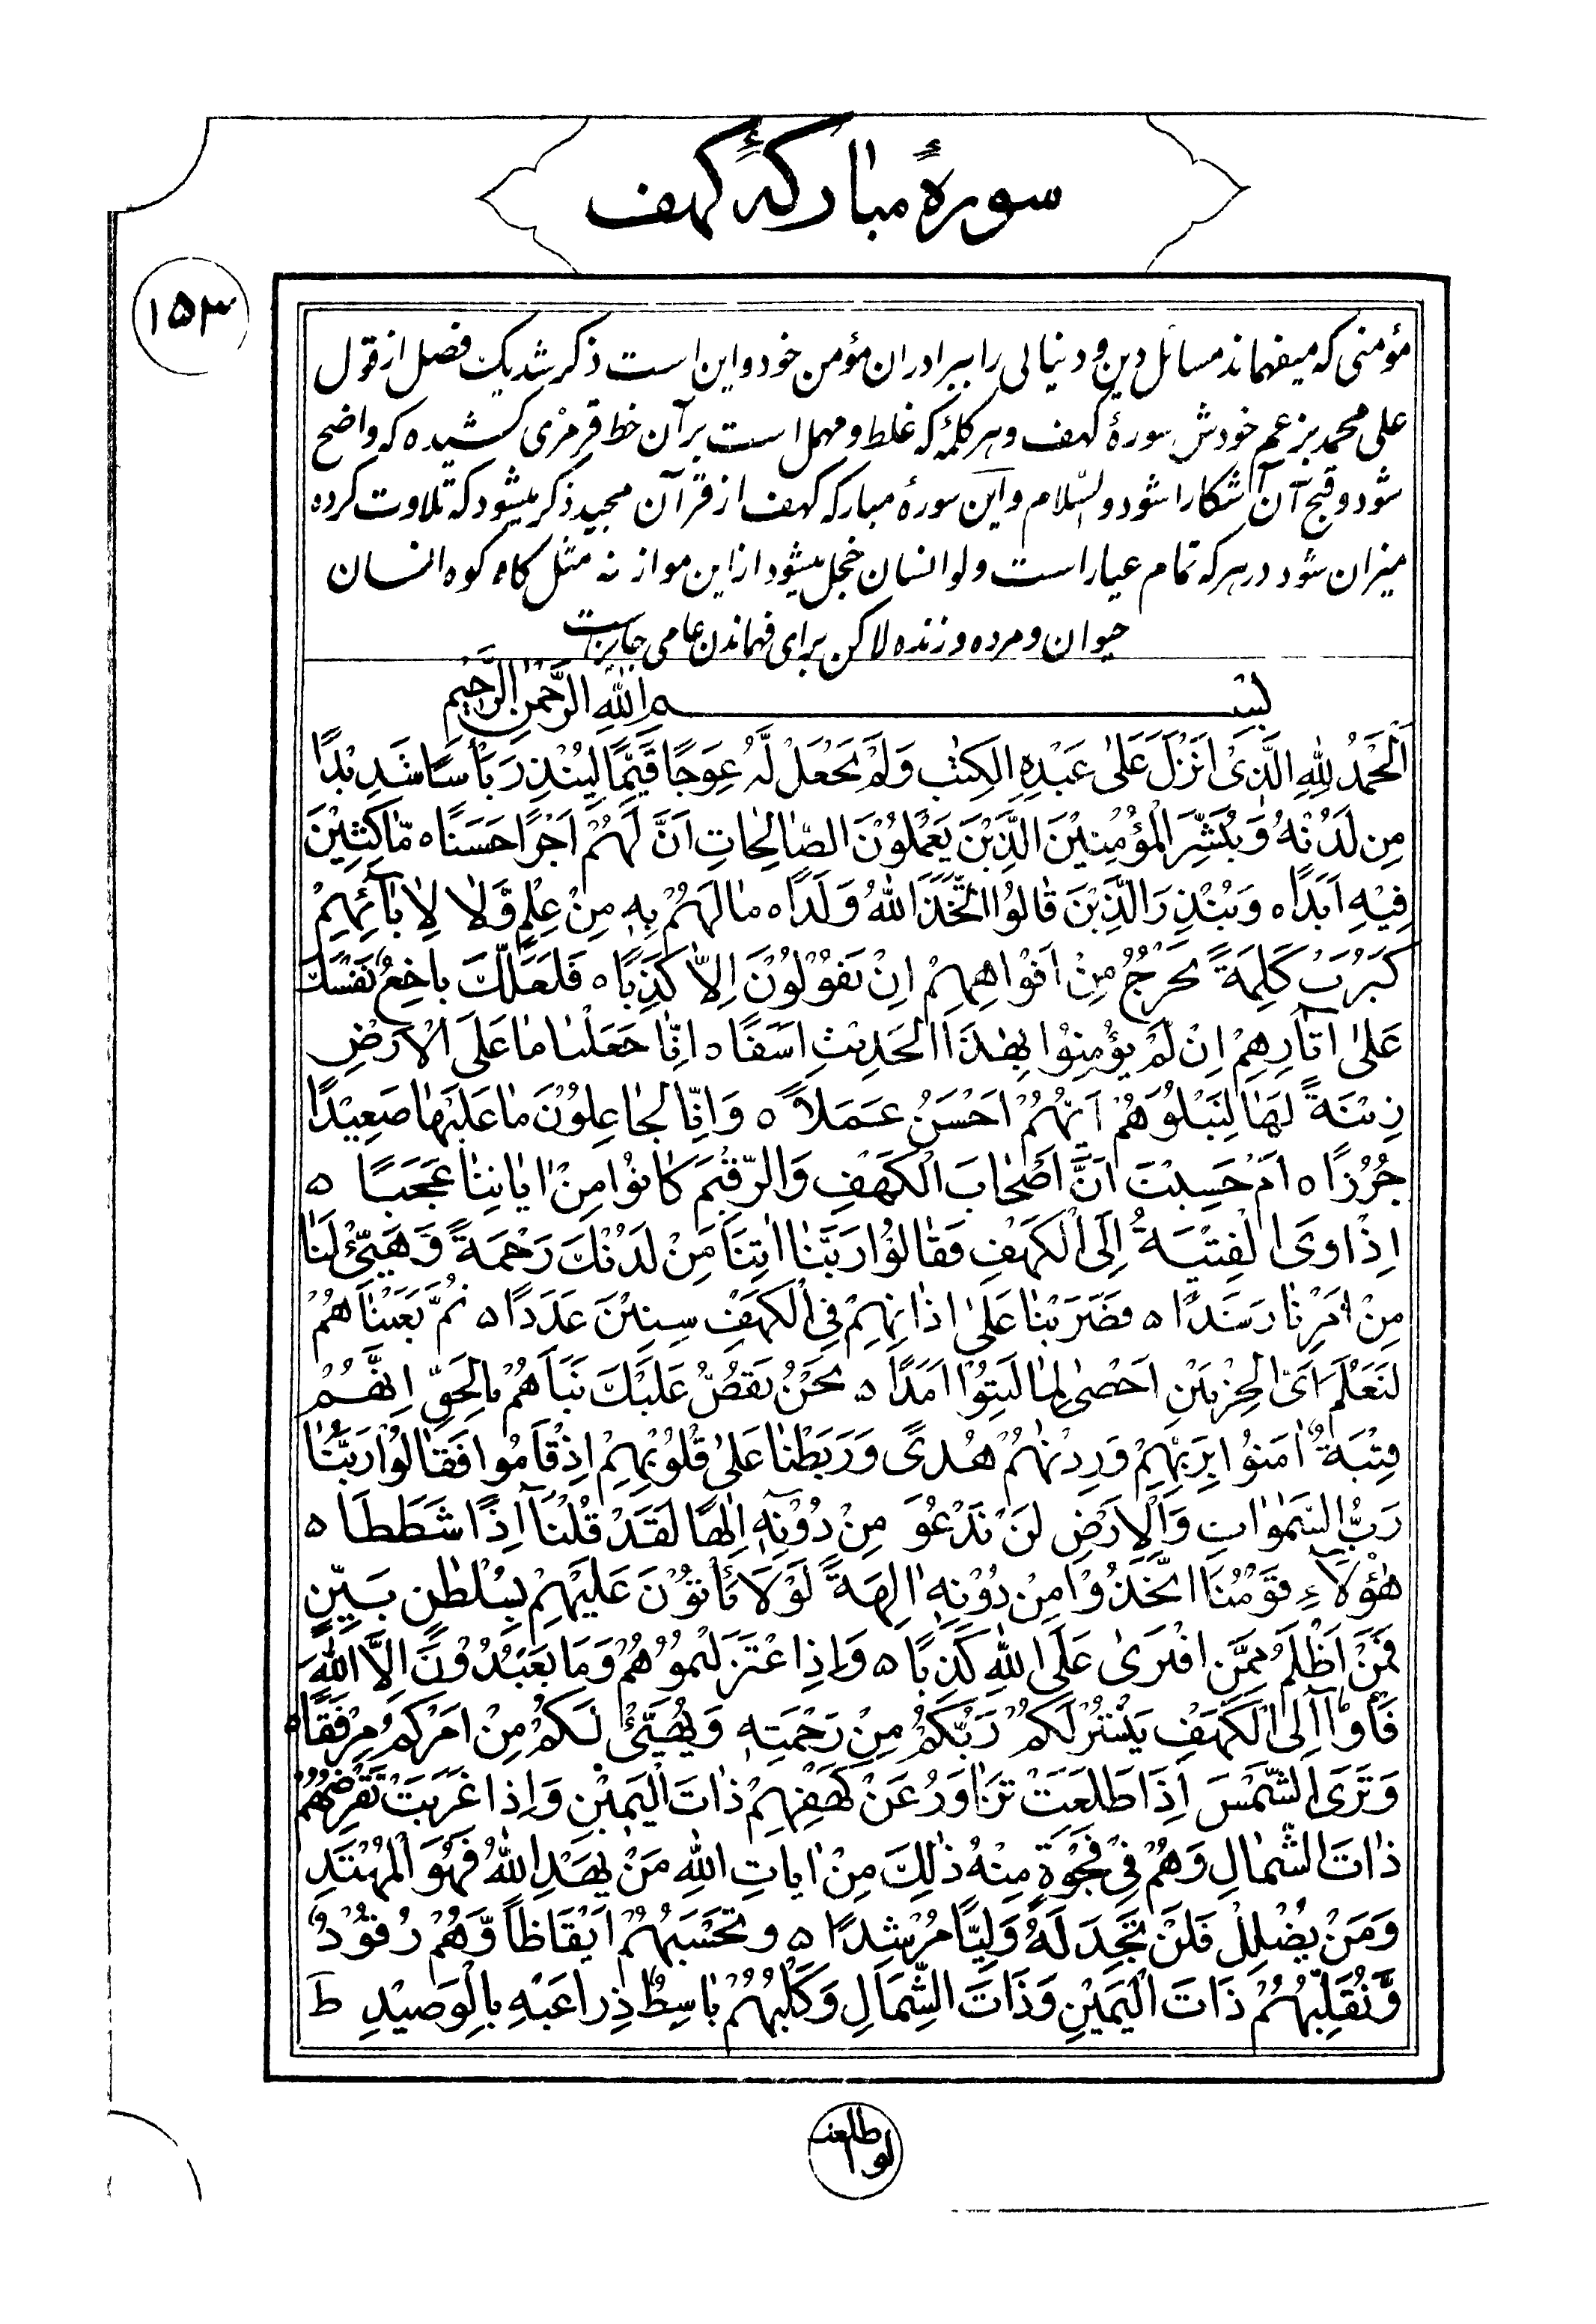 سورهٔ مبارکهٔ کهف
۱۵۳
مؤمنی که میفهماند مسائل دین و دنیائی را ببرادران مؤمن خود و این است ذکر شد یک فصل از قول
علی محمد بزعم خودش سورهٔ کهف و هر کلمهٔ که غلط و مهمل است بر آن خط قرمزی کشیده که واضح
شود و قبح آن آشکارا شود والسّلام و این سورهٔ مبارکه کهف از قرآن مجید ذکر میشود که تلاوت کرده
میزان شود در هر که تمام عیار است و لو انسان خجل میشود از این موازنه مثل کاه کوه انسان
حیوان و مرده و زنده لاکن برای فهماندن عامی جایز است
بسم الله الرَّحْمنِ الرَّحیمِ
اَلْحَمْدُ لِلّٰهِ الَّذِیْ اَنْزَلَ عَلیٰ عَبْدِهِ الْکِتٰبَ وَلَمْ یَجْعَلْ لَّهُ عِوَجًا قَیِّمًا لِیُنْذِرَ بَأْسًا شَدِیْدًا
مِن لَدُنْهُ وَیُبَشِّرَ الْمُؤْمِنِیْنَ الَّذِیْنَ یَعْمَلُوْنَ الصّٰالِحٰاتِ اَنَّ لَهُمْ اَجْرًا حَسَنًا ه مّٰاکِثِیْنَ
فِیْهِ اَبَدًا ه وَیُنْذِرَ الَّذِیْنَ قٰالُوا اتَّخَذَ اللّٰهُ وَلَدًا ه مٰا لَهُمْ بِهٖ مِنْ عِلْمٍ وَّلاٰ لِاٰبٰآئِهِمْ
کَبُرَتْ کَلِمَةً تَخْرُجُ مِنْ اَفْوٰاهِهِمْ اِنْ یَقُوْلُوْنَ اِلاّٰ کَذِبًا ه فَلَعَلَّکَ بٰاخِعٌ نَفْسَکَ
عَلیٰ اٰثٰارِهِمْ اِنْ لَمْ یُؤْمِنُوا بِهٰذَا الْحَدِیْثِ اَسَفًا ه اِنّٰا جَعَلْنٰا مٰا عَلَی الْاَرْضِ
زِیْنَةً لَهٰا لِنَبْلُوَهُمْ اَیُّهُمْ اَحْسَنُ عَمَلاً ه وَاِنّٰا لَجٰاعِلُوْنَ مٰا عَلَیْهٰا صَعِیْدًا
جُرُزًا ه اَمْ حَسِبْتَ اَنَّ اَصْحٰابَ الْکَهْفِ وَالرَّقِیْمِ کٰانُوْا مِنْ اٰیٰاتِنٰا عَجَبًا ه
اِذْ اَوَی الْفِتْیَةُ اِلَی الْکَهْفِ فَقٰالُوْا رَبَّنٰا اٰتِنَا مِنْ لَدُنْکَ رَحْمَةً وَّهَیِّئْ لَنٰا
مِنْ اَمْرِنٰا رَشَدًا ه فَضَرَبْنٰا عَلیٰ اٰذٰانِهِمْ فِی الْکَهْفِ سِنِیْنَ عَدَدًا ه ثُمَّ بَعَثْنٰاهُمْ
لِنَعْلَمَ اَیُّ الْحِزْبَیْنِ اَحْصیٰ لِمٰا لَبِثُوْا اَمَدًا ه نَحْنُ نَقُصُّ عَلَیْکَ نَبَاَهُمْ بِالْحَقِّ اِنَّهُمْ
فِتْیَةٌ اٰمَنُوْا بِرَبِّهِمْ وَزِدْنٰهُمْ هُدیً وَرَبَطْنٰا عَلیٰ قُلُوْبِهِمْ اِذْ قٰامُوا فَقٰالُوْا رَبُّنٰا
رَبُّ السَّمٰوٰاتِ وَالْاَرْضِ لَنْ نَدْعُوَ مِنْ دُوْنِهٖ اِلٰهًا لَقَدْ قُلْنَا اِذًا شَطَطًا ه
هٰؤُلَاءِ قَوْمُنَا اتَّخَذُوْا مِنْ دُوْنِهٖ اٰلِهَةً لَوْلَا یَأْتُوْنَ عَلَیْهِمْ بِسُلْطٰنٍ بَیِّنٍ
فَمَنْ اَظْلَمُ مِمَّنِ افْتَریٰ عَلَی اللّٰهِ کَذِبًا ه وَاِذِ اعْتَزَلْتُمُوْهُمْ وَمَا یَعْبُدُوْنَ اِلَّا اللّٰهَ
فَأْوٗا اِلَی الْکَهْفِ یَنْشُرْ لَکُمْ رَبُّکُمْ مِنْ رَحْمَتِهٖ وَیُهَیِّئْ لَکُمْ مِنْ اَمْرِکُمْ مِرْفَقًا ه
وَتَرَی الشَّمْسَ اِذَا طَلَعَتْ تَزٰاوَرُ عَنْ کَهْفِهِمْ ذٰاتَ الْیَمِیْنِ وَاِذا غَرَبَتْ تَقْرِضُهُمْ
ذٰاتَ الشِّمٰالِ وَهُمْ فِیْ فَجْوَةٍ مِنْهُ ذٰلِکَ مِنْ اٰیاتِ اللّٰهِ مَنْ یَهْدِ اللّٰهُ فَهُوَ الْمُهْتَدِ
وَمَنْ یُضْلِلْ فَلَنْ تَجِدَ لَهُ وَلِیًّا مُرْشِدًا ه وتَحْسَبُهُمْ اَیْقَاظًا وَّهُمْ رُقُوْدٌ
وَّنُقَلِّبُهُمْ ذَاتَ الْیَمِیْنِ وَذَاتَ الشِّمَالِ وَکَلْبُهُمْ بٰاسِطٌ ذِراعَیْهِ بِالْوَصِیْدِ ط
لو اطلعت